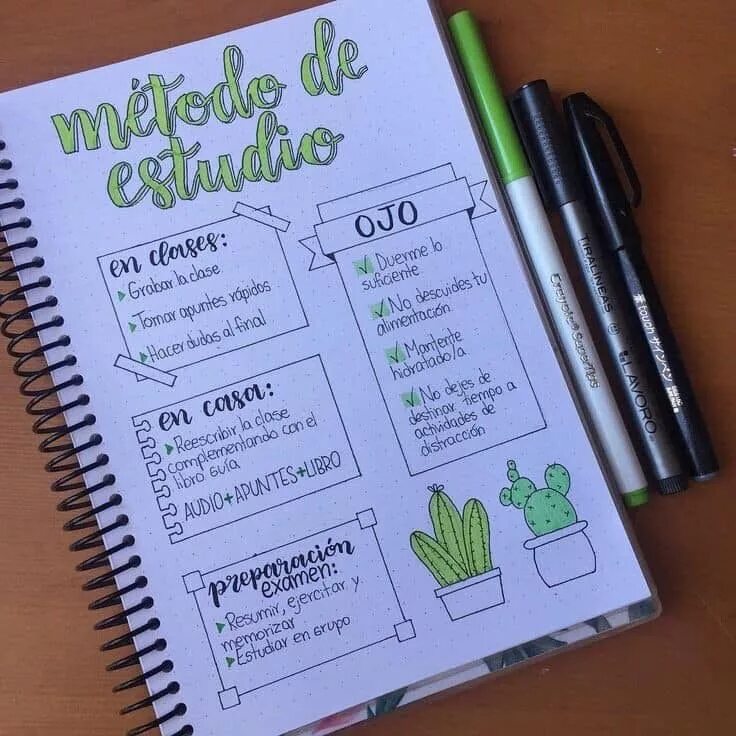 método de
estudio
en clases:
Grabar la clase
Tomar apuntes rápidos
Hacer dudas al final
en casa:
Reescribir la clase
complementando con el
libro guía
AUDIO+APUNTES+LIBRO
preparación
examen:
Resumir, ejercitar y
memorizar
Estudiar en grupo
OJO
Duerme lo
suficiente
No descuides tu
alimentación
Mantente
hidratado/a
No dejes de
destinar tiempo a
actividades de
distracción
TIRALÍNEAS
LAVORO
touch サインペン